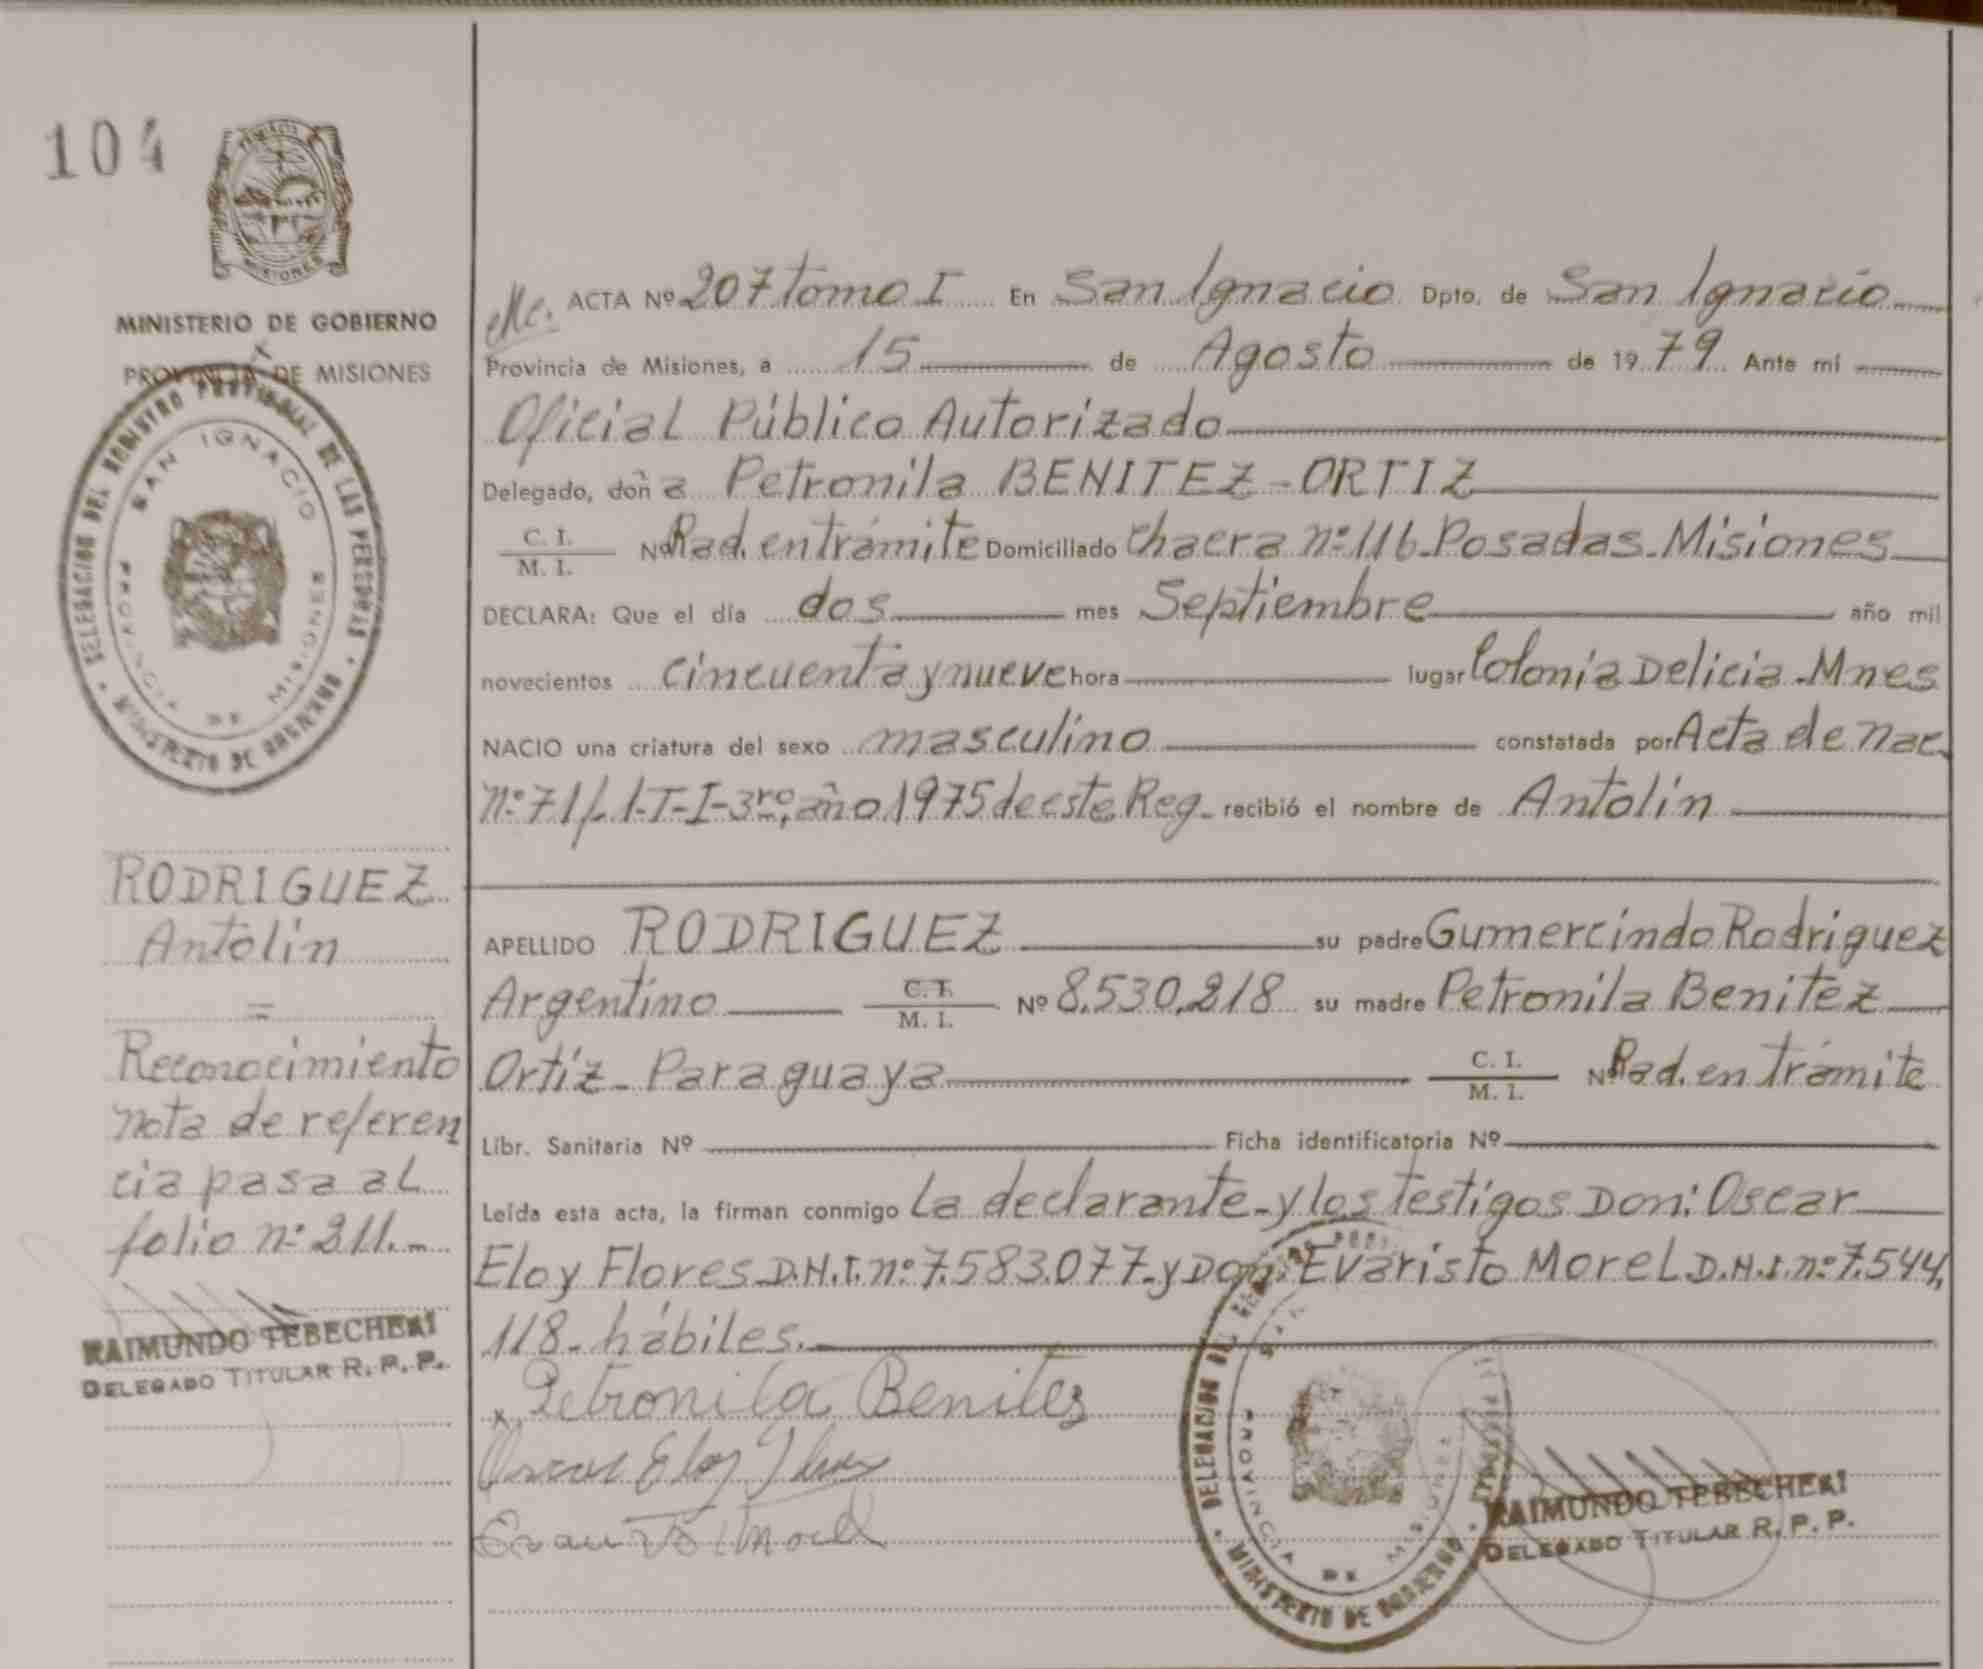 104
PROVINCIA
MISIONES
MINISTERIO DE GOBIERNO
PROVINCIA DE MISIONES
DELEGACION DEL REGISTRO PROVINCIAL DE LAS PERSONAS
SAN IGNACIO
PROVINCIA DE MISIONES
MINISTERIO DE GOBIERNO
RODRIGUEZ
Antolín
=
Reconocimiento
nota de referen
cia pasa al
folio nº 211.-
RAIMUNDO TEBECHERI
DELEGADO TITULAR R. P. P.
ACTA Nº 207 tomo I En San Ignacio Dpto. de San Ignacio
Provincia de Misiones, a 15 de Agosto de 1979. Ante mí
Oficial Público Autorizado
Delegado, doña Petronila BENITEZ-ORTIZ
C. I.
M. I.
Nº Rad. en trámite Domiciliado Chacra nº 116-Posadas-Misiones
DECLARA: Que el día dos mes Septiembre año mil
novecientos cincuenta y nueve hora lugar Colonia Delicia-Mnes
NACIO una criatura del sexo masculino constatada por Acta de Nac.
nº 71 f. 1-T-I-3ro, año 1975 de este Reg. recibió el nombre de Antolín
APELLIDO RODRIGUEZ su padre Gumercindo Rodriguez
Argentino C. I. M. I. Nº 8.530.218 su madre Petronila Benítez
Ortíz- Paraguaya C. I. M. I. Nº Rad. en trámite
Libr. Sanitaria Nº Ficha identificatoria Nº
Leída esta acta, la firman conmigo La declarante-y los testigos Don: Oscar
Eloy Flores D.N.I. nº 7.583.077-y Don: Evaristo Morel D.N.I. nº 7.544.
118- hábiles.-
x Petronila Benites
Oscar Eloy Flores
Evaristo Morel
DELEGACION DEL
PROVINCIA DE MISIONES
MINISTERIO DE GOBIERNO
RAIMUNDO TEBECHERI
DELEGADO TITULAR R. P. P.